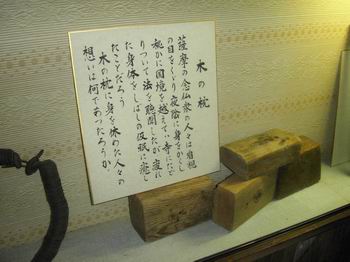 木の枕
薩摩の念仏衆の人々は看視
の目をくぐり夜陰に身をかくし
秘かに国境を越えて寺にたど
りついて法を聴聞したが疲れ
た身体をしばしの仮眠に癒し
たことだろう
木の枕に身を休めた人々の
想いは何であったろうか